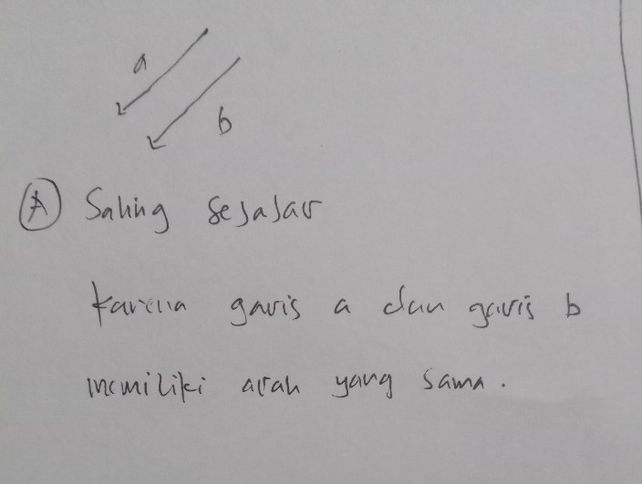 a
b
A Saling sejajar
karena garis a dan garis b
memiliki arah yang sama.